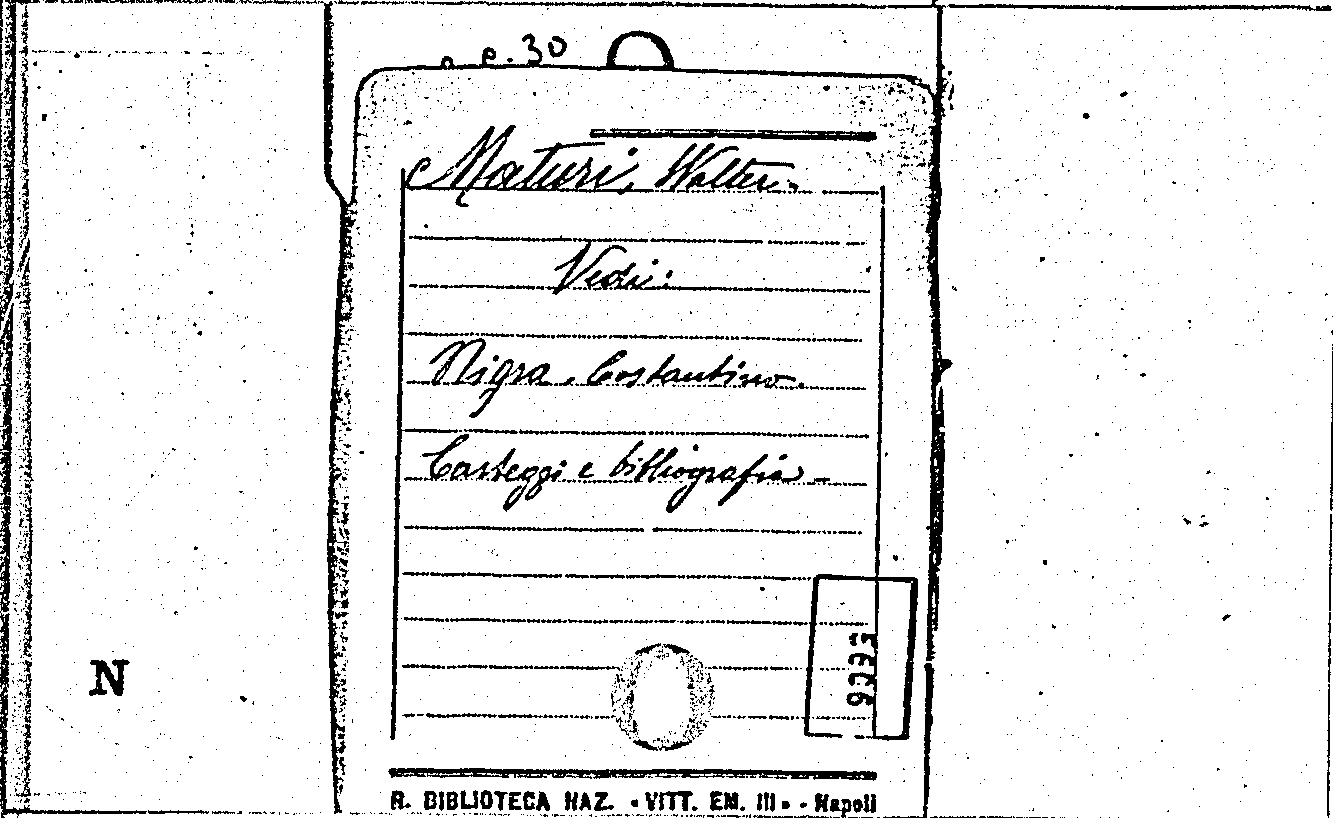 e. 30
Maturi, Walter.
Vedi:
Nigra. Costantino.
Carteggi e bibliografia -
N
R. BIBLIOTECA NAZ. • VITT. EM. III • - Napoli